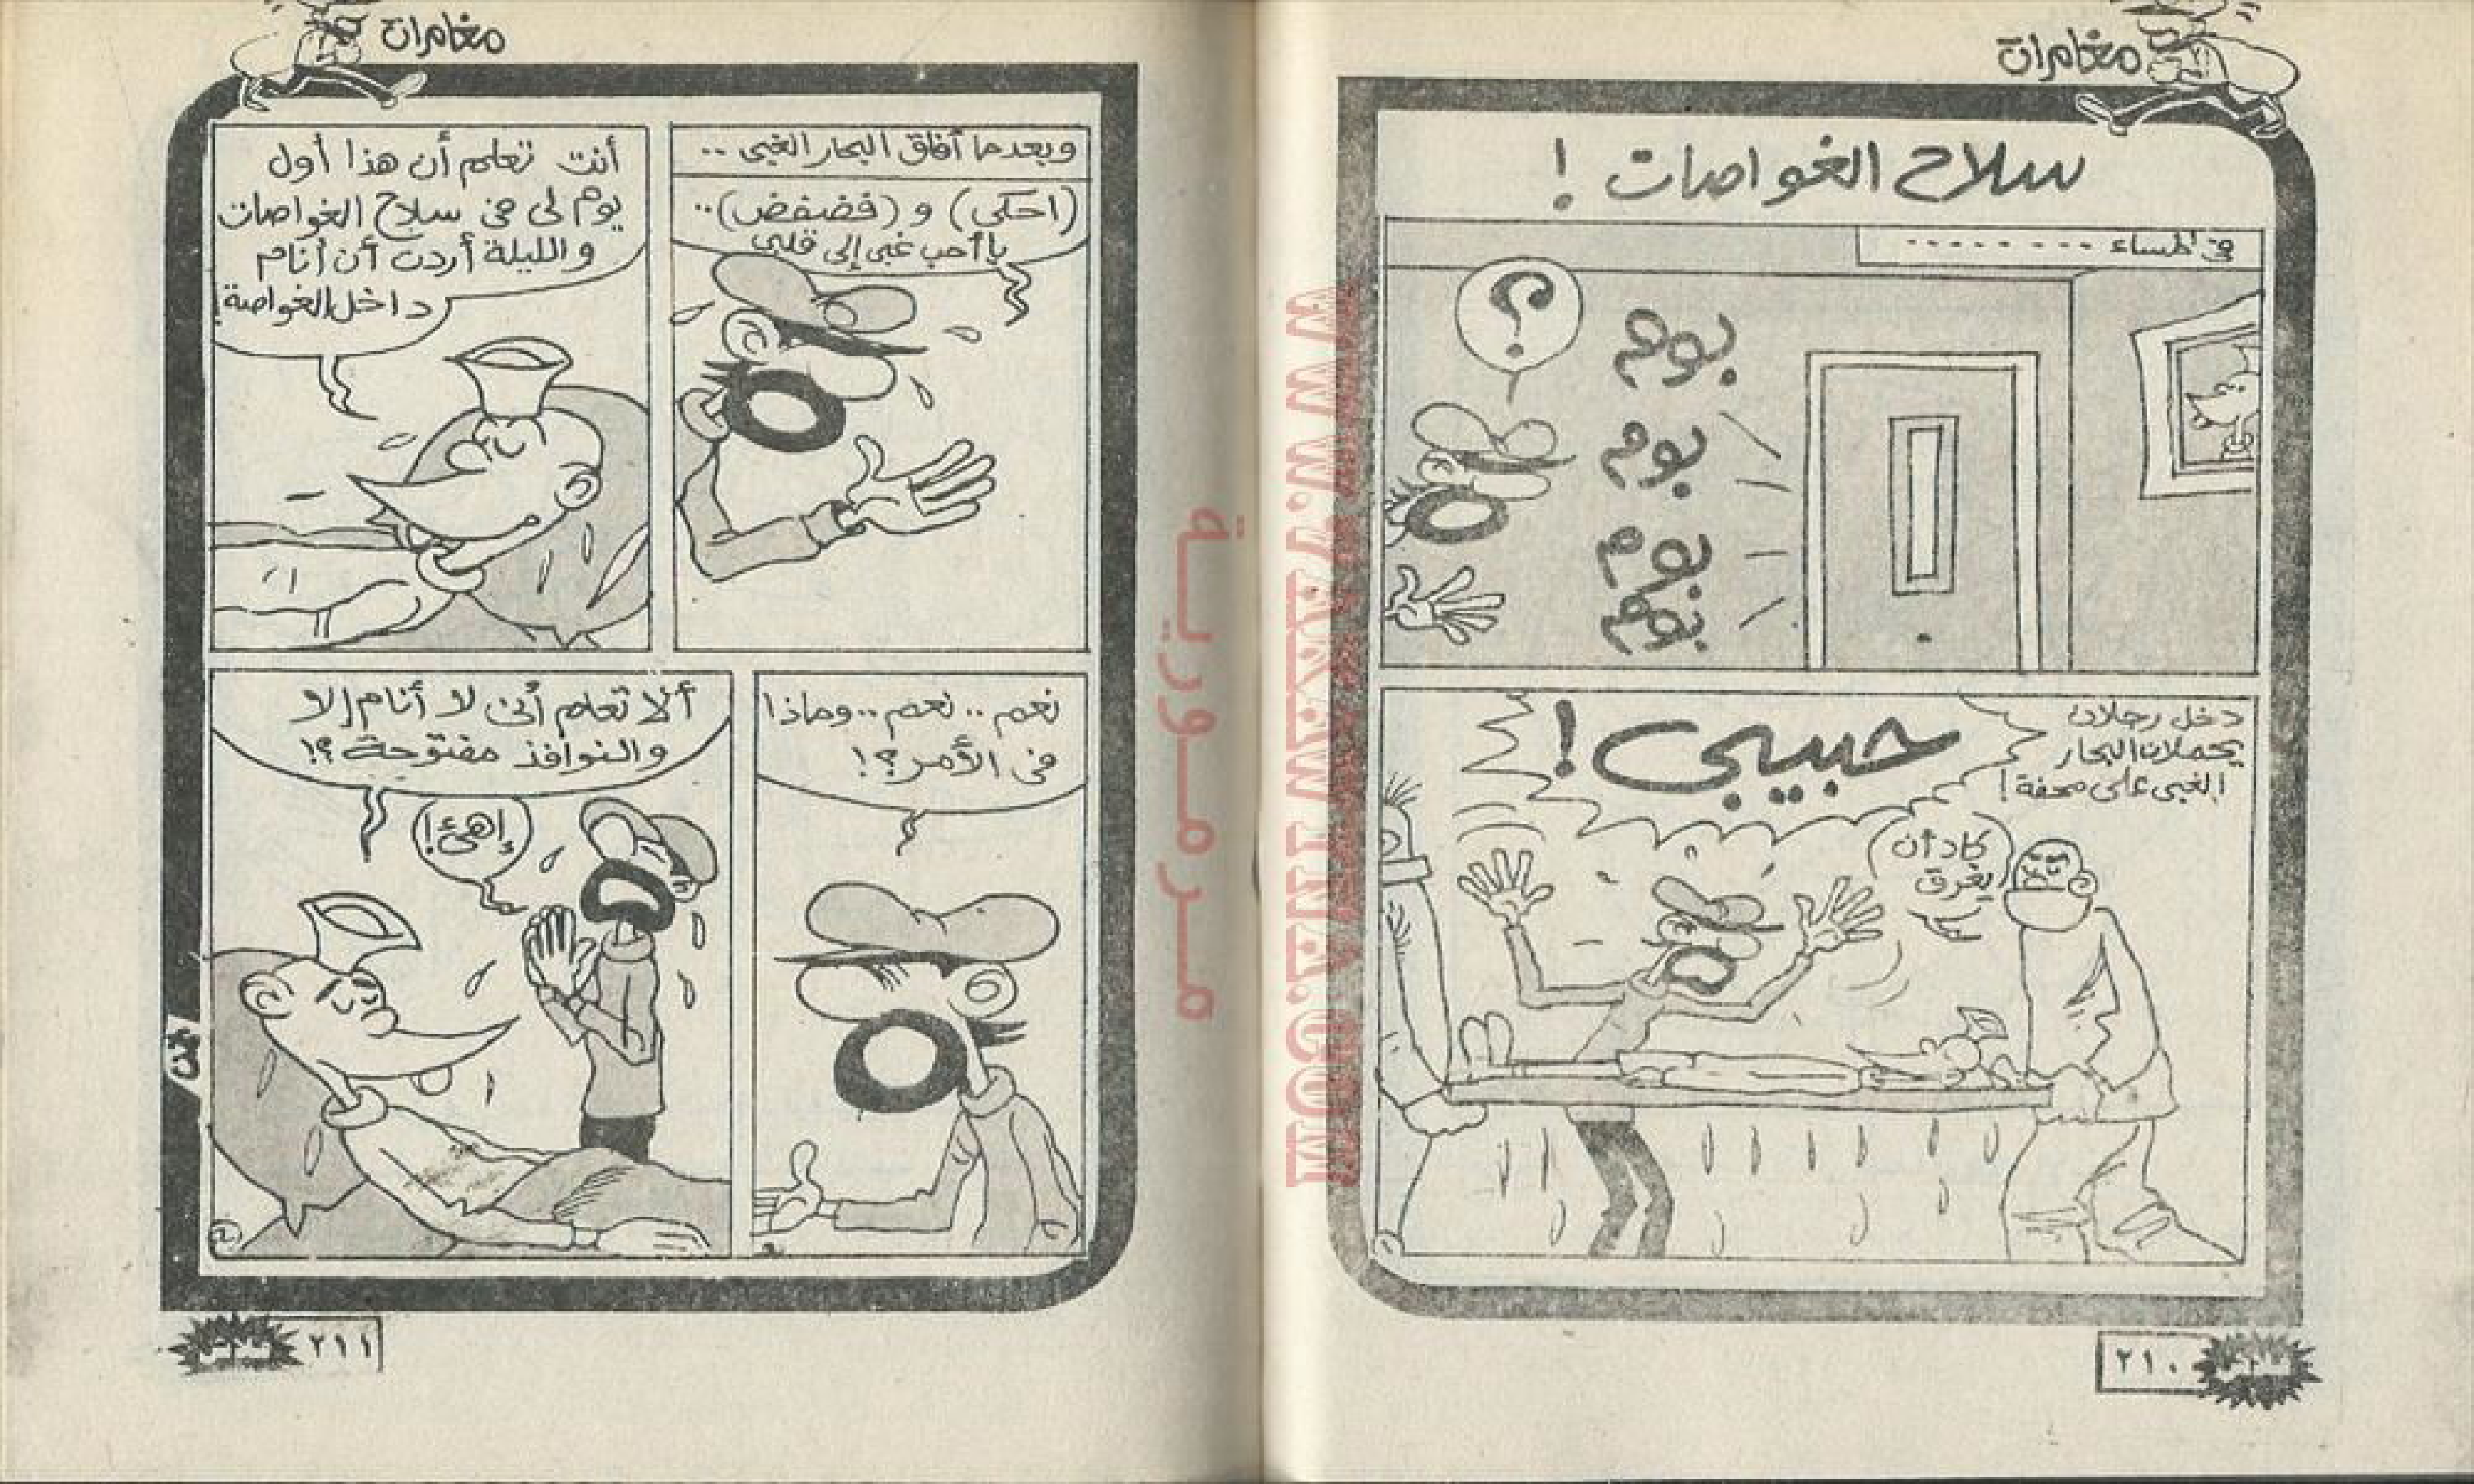 مغامرات
سلاح الغواصات !
في المساء
؟
بوم
بوم
بوم
بوم
دخل رجلان
يحملان البحار
الغبي على محفة !
حبيبي !
كاد أن
يغرق
٢١٠
مغامرات
وبعدما أفاق البحار الغبي ..
(احكي) و (فضفض) ..
يا أحب غبي إلى قلبي
أنت تعلم أن هذا أول
يوم لي في سلاح الغواصات
والليلة أردت أن أنام
داخل الغواصة !
نعم .. نعم .. وماذا
في الأمر ؟!
ألا تعلم أني لا أنام إلا
والنوافذ مفتوحة ؟!
إهئ !
٢١١
مرمورية
WWW.
.COM